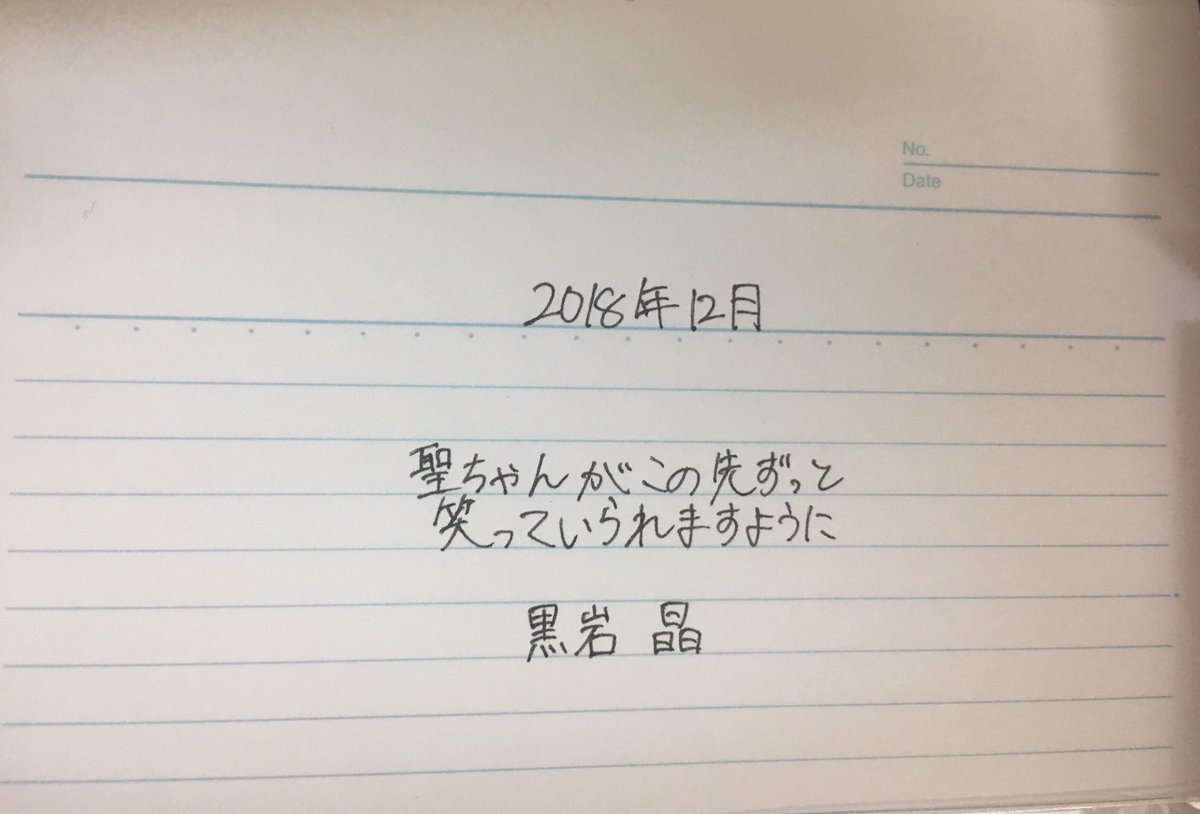 No.
Date
2018年12月
聖ちゃんがこの先ずっと
笑っていられますように
黒岩 晶